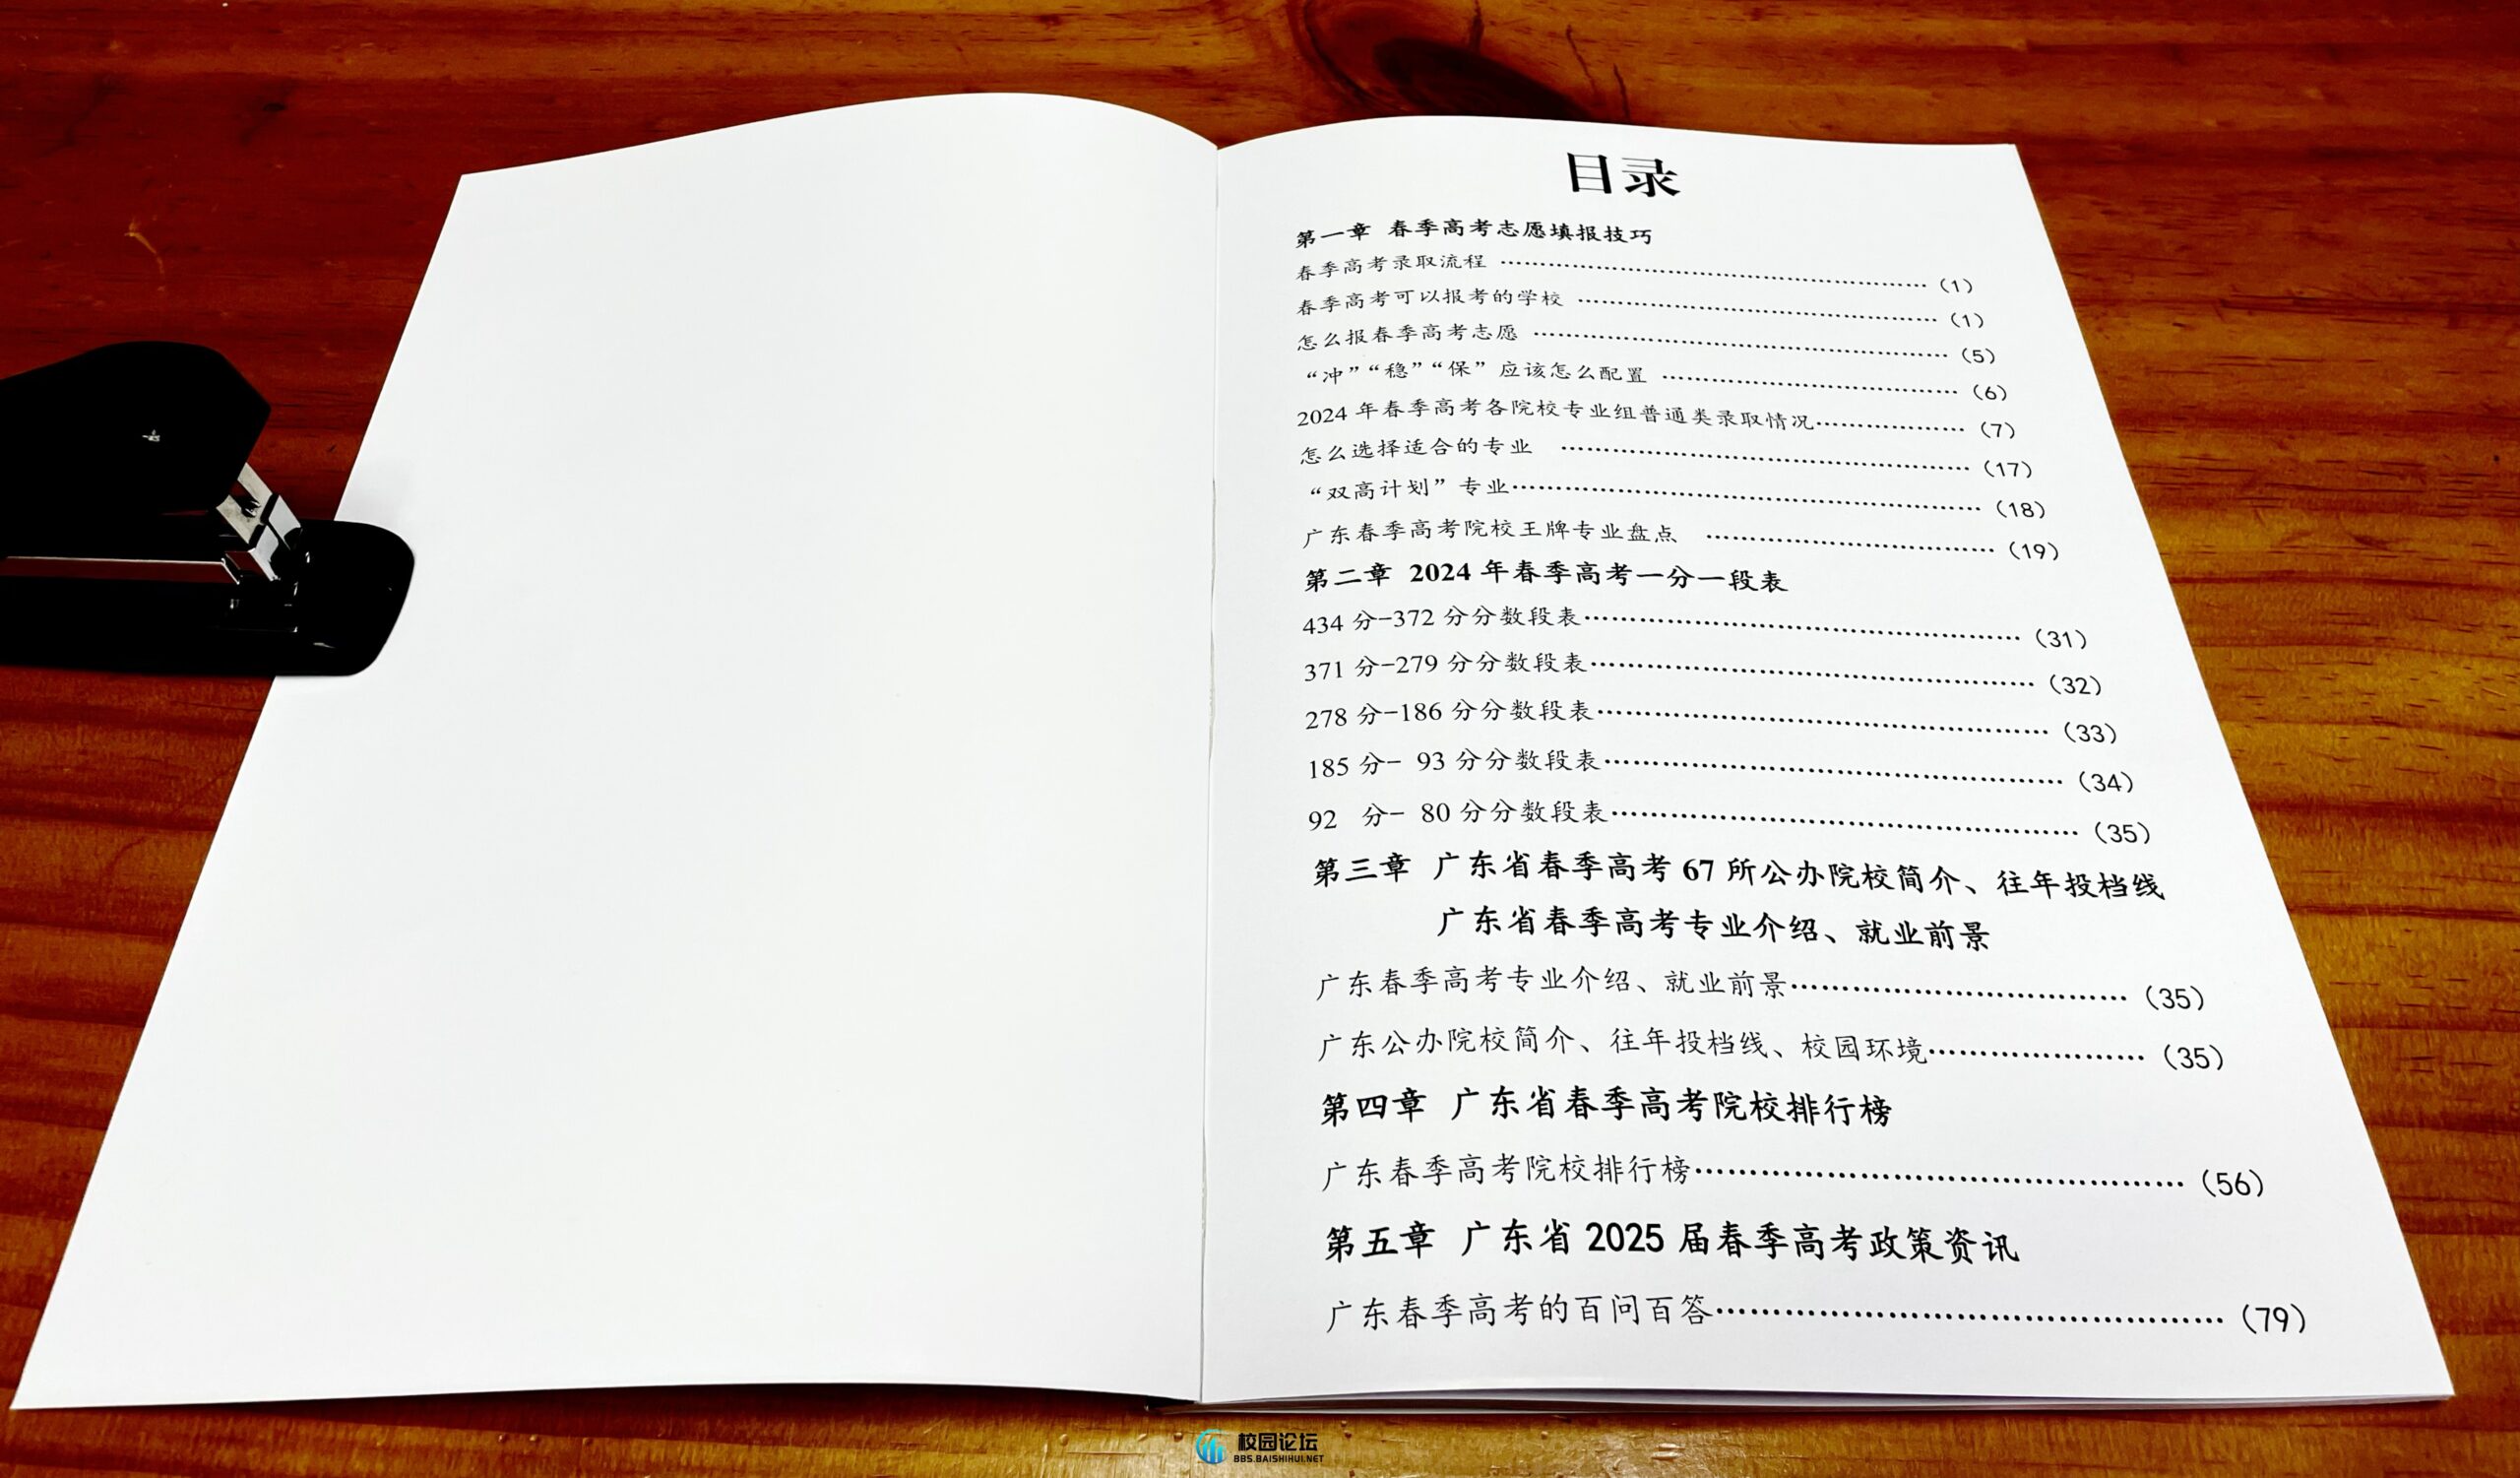 目录
第一章 春季高考志愿填报技巧
春季高考录取流程 ……………………………………………（1）
春季高考可以报考的学校 ……………………………………（1）
怎么报春季高考志愿 …………………………………………（5）
“冲”“稳”“保”应该怎么配置 ………………………………（6）
2024 年春季高考各院校专业组普通类录取情况………………（7）
怎么选择适合的专业 …………………………………………（17）
“双高计划”专业………………………………………………（18）
广东春季高考院校王牌专业盘点 ……………………………（19）
第二章 2024 年春季高考一分一段表
434 分-372 分分数段表………………………………………（31）
371 分-279 分分数段表………………………………………（32）
278 分-186 分分数段表………………………………………（33）
185 分- 93 分分数段表………………………………………（34）
92 分- 80 分分数段表………………………………………（35）
第三章 广东省春季高考 67 所公办院校简介、往年投档线
广东省春季高考专业介绍、就业前景
广东春季高考专业介绍、就业前景……………………………（35）
广东公办院校简介、往年投档线、校园环境…………………（35）
第四章 广东省春季高考院校排行榜
广东春季高考院校排行榜………………………………………（56）
第五章 广东省 2025 届春季高考政策资讯
广东春季高考的百问百答………………………………………（79）
校园论坛
BBS.BAISHIHUI.NET